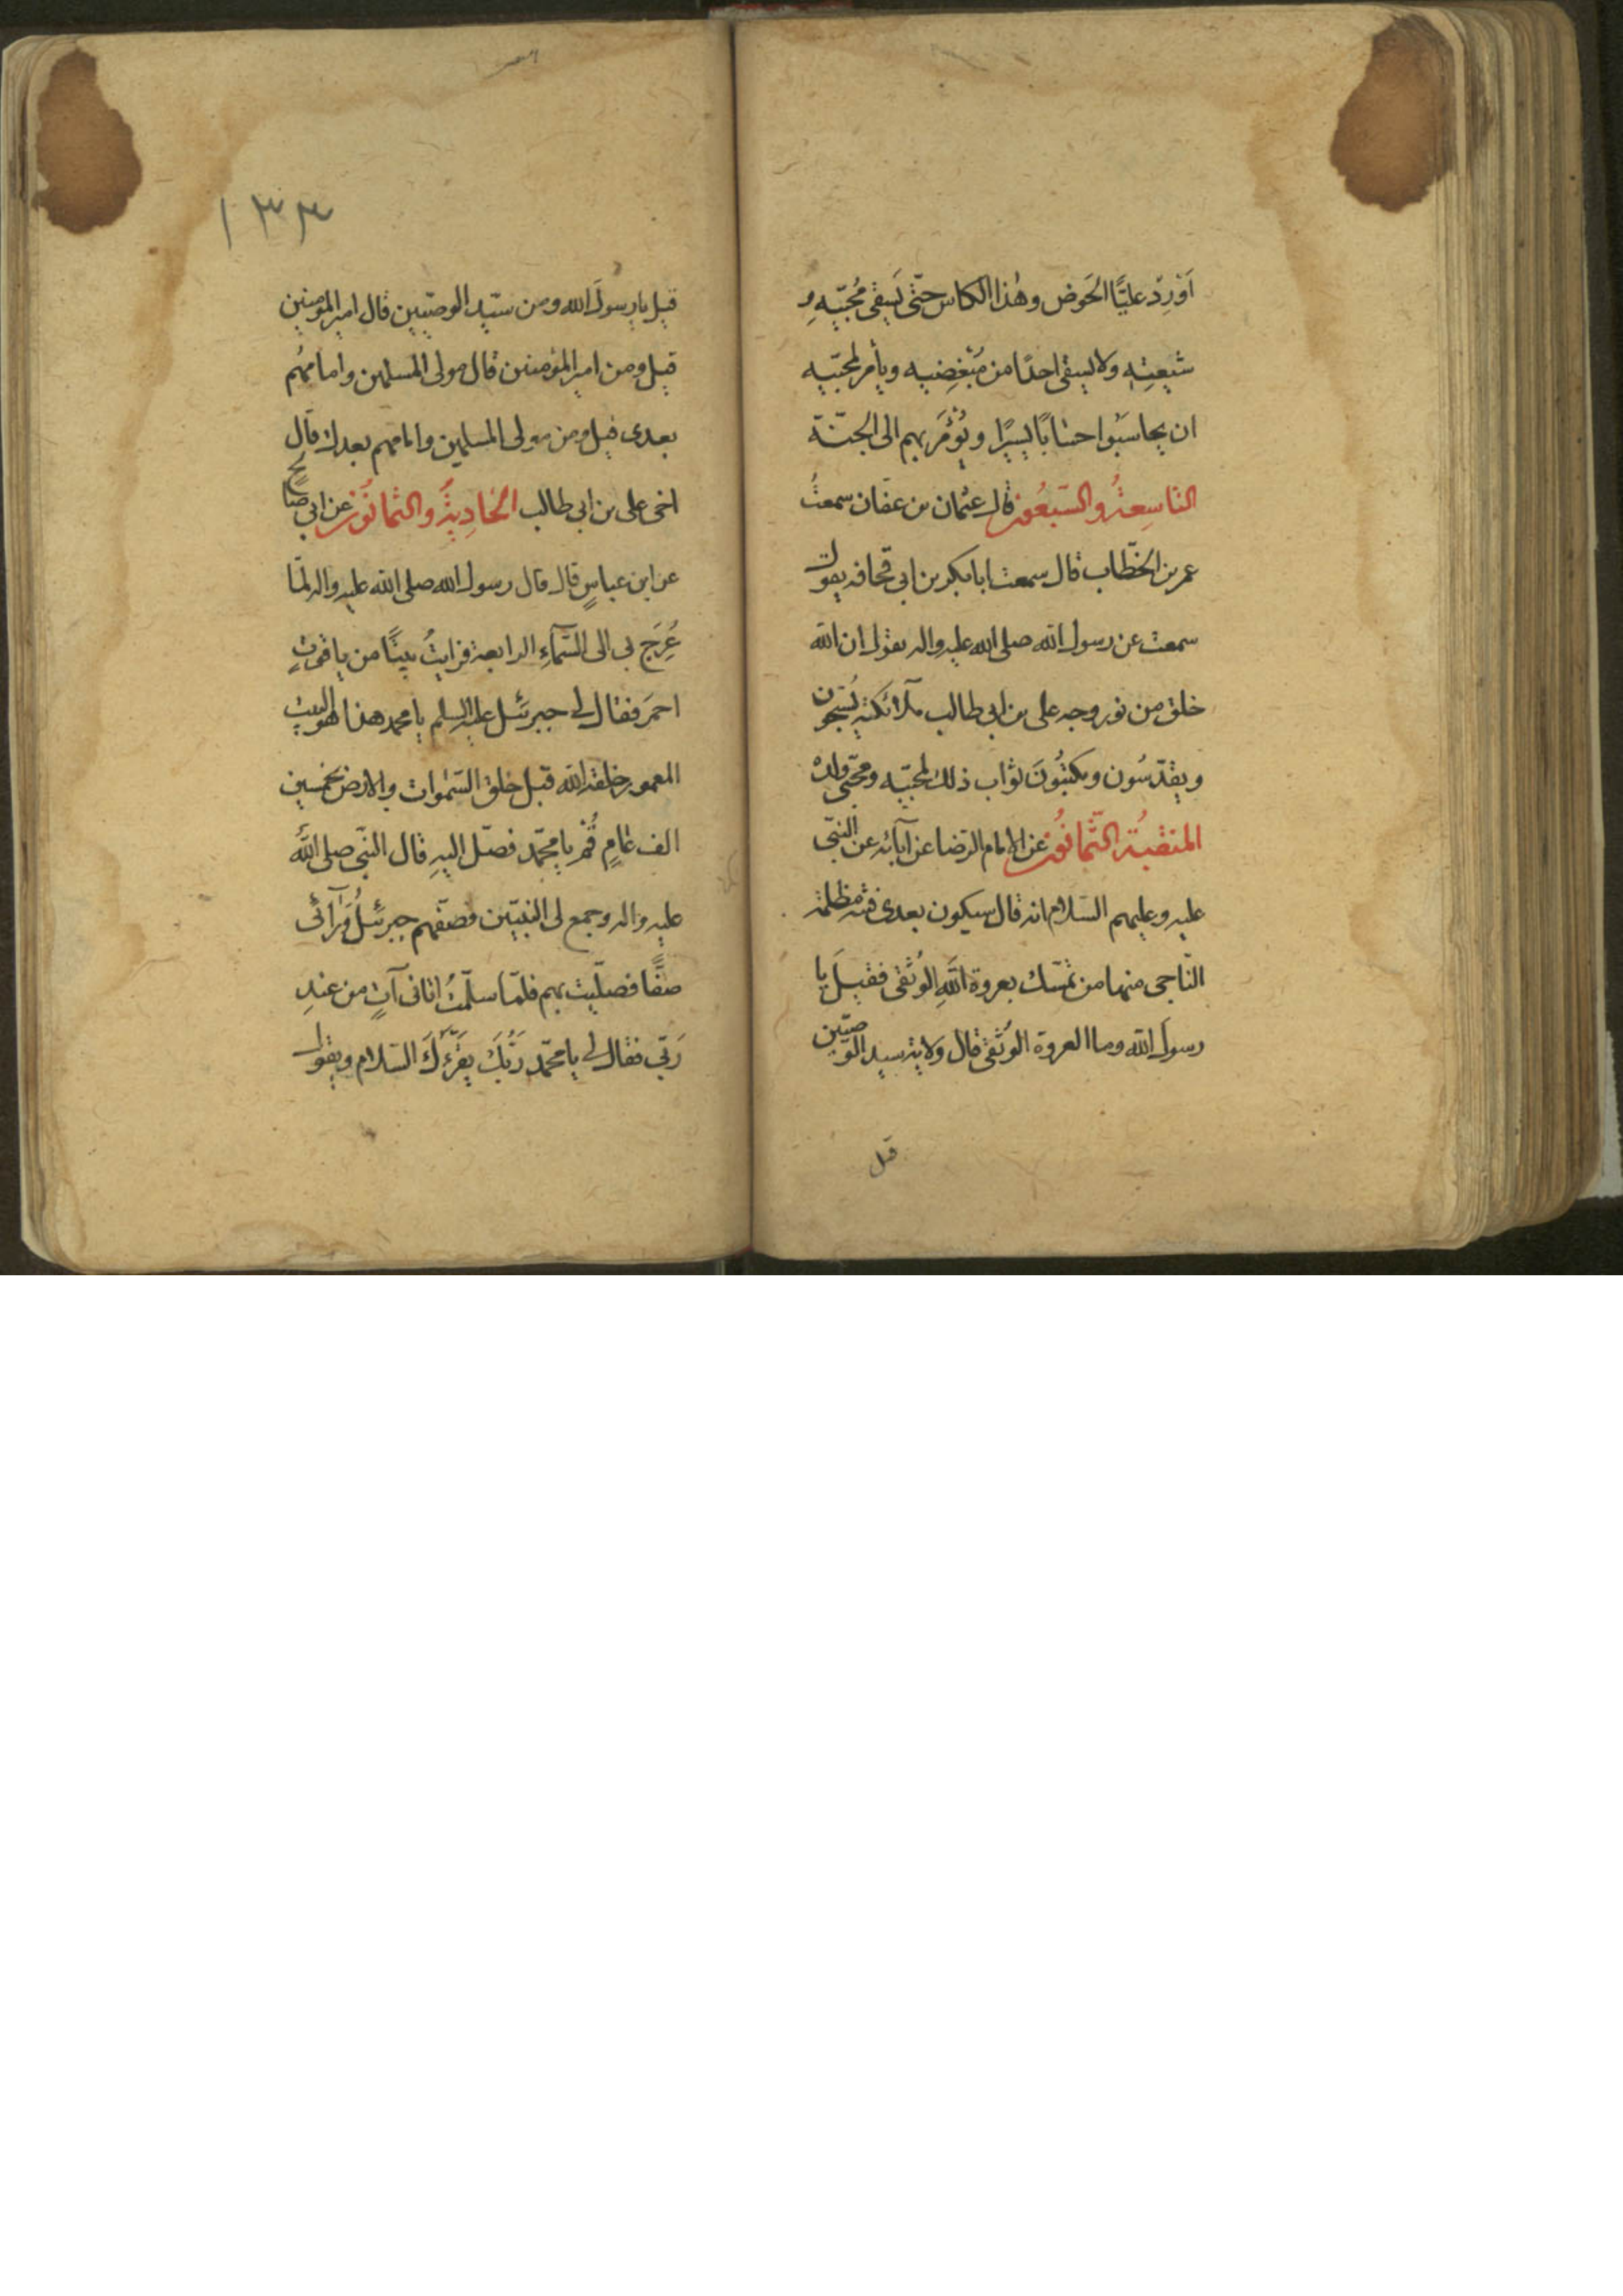 اَوْرِدْ عليًّا الحَوض وهٰذا الكاس حتّى يَسقى مُحِبّيهِ و
شيعتِهِ ولا يسقى احدًا من مُبْغِضيه ويأمر لمحبّيه
ان يحاسَبُوا حسابًا يسيرًا ويُؤْمَرَ بهم الى الجنّة
التاسِعَةُ والسّبعُون قال عثمان بن عفّان سمعتُ
عمر بن الخطّاب قال سمعت ابابكر بن ابى قحافه يقول
سمعت عن رسول الله صلى الله عليه واله يقول ان الله
خلق من نور وجه على بن ابى طالب ملائكته يُسبّحون
ويقدّسُون ويكتبُونَ ثواب ذلك لمحبّيه ومحبّى ولده
المنقبةُ الثّمانُون عن الامام الرّضا عن آبائه عن النبّى
عليه وعليهم السّلام انه قال سيكون بعدى فتنه مظلمة
النّاجى منها من تمسّك بعروة اللهِ الوُثقى فقيلَ يا
رسولَ الله وما العروة الوُثقى قال ولاية سيد الوصيّين
قيل
١٣٣
قيل يا رسولَ الله ومن سيّد الوصيّيين قال امير المؤمنين
قيل ومن امير المؤمنين قال مولى المسلمين وامامهُم
بعدى قيل ومن مولى المسلمين وامامهم بعدك قال
اخى على بن ابى طالب الحَادِيةُ والثمانُون عن ابى صالح
عن ابن عباسٍ قال قال رسول الله صلى الله عليه واله لمّا
عُرِجَ بى الى السَّمآءِ الرابعة فرايتُ بيتًا من ياقوتٍ
احمَرَ فقال لى جبرئيل عليه السلم يا محمد هذا هو البيت
المعمور خلقه الله قبل خلق السّمٰوات والارض بخمسين
الف عامٍ قُمْ يا محمّد فصَلّ اليهِ قال النبّى صلى اللهُ
عليه واله وجمع لى النبيّين فصفّهم جبرئيلُ وَرآئى
صفًّا فصلّيت بهم فلمّا سلّمتُ اتانى آتٍ من عندِ
رَبّى فقال لى يا محمّد رَبُّكَ يقرئكَ السّلام ويقول